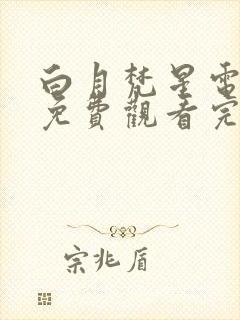 白月梵星電
免費觀看完
宗兆盾